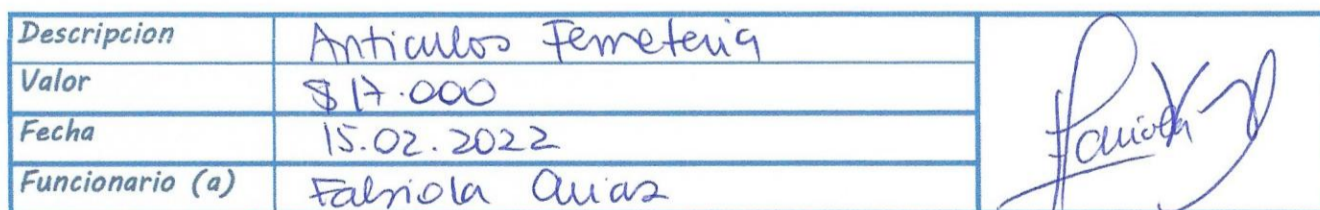 Descripcion Articulos Ferreteria
Valor $17.000
Fecha 15.02.2022
Funcionario (a) Fabiola Arias